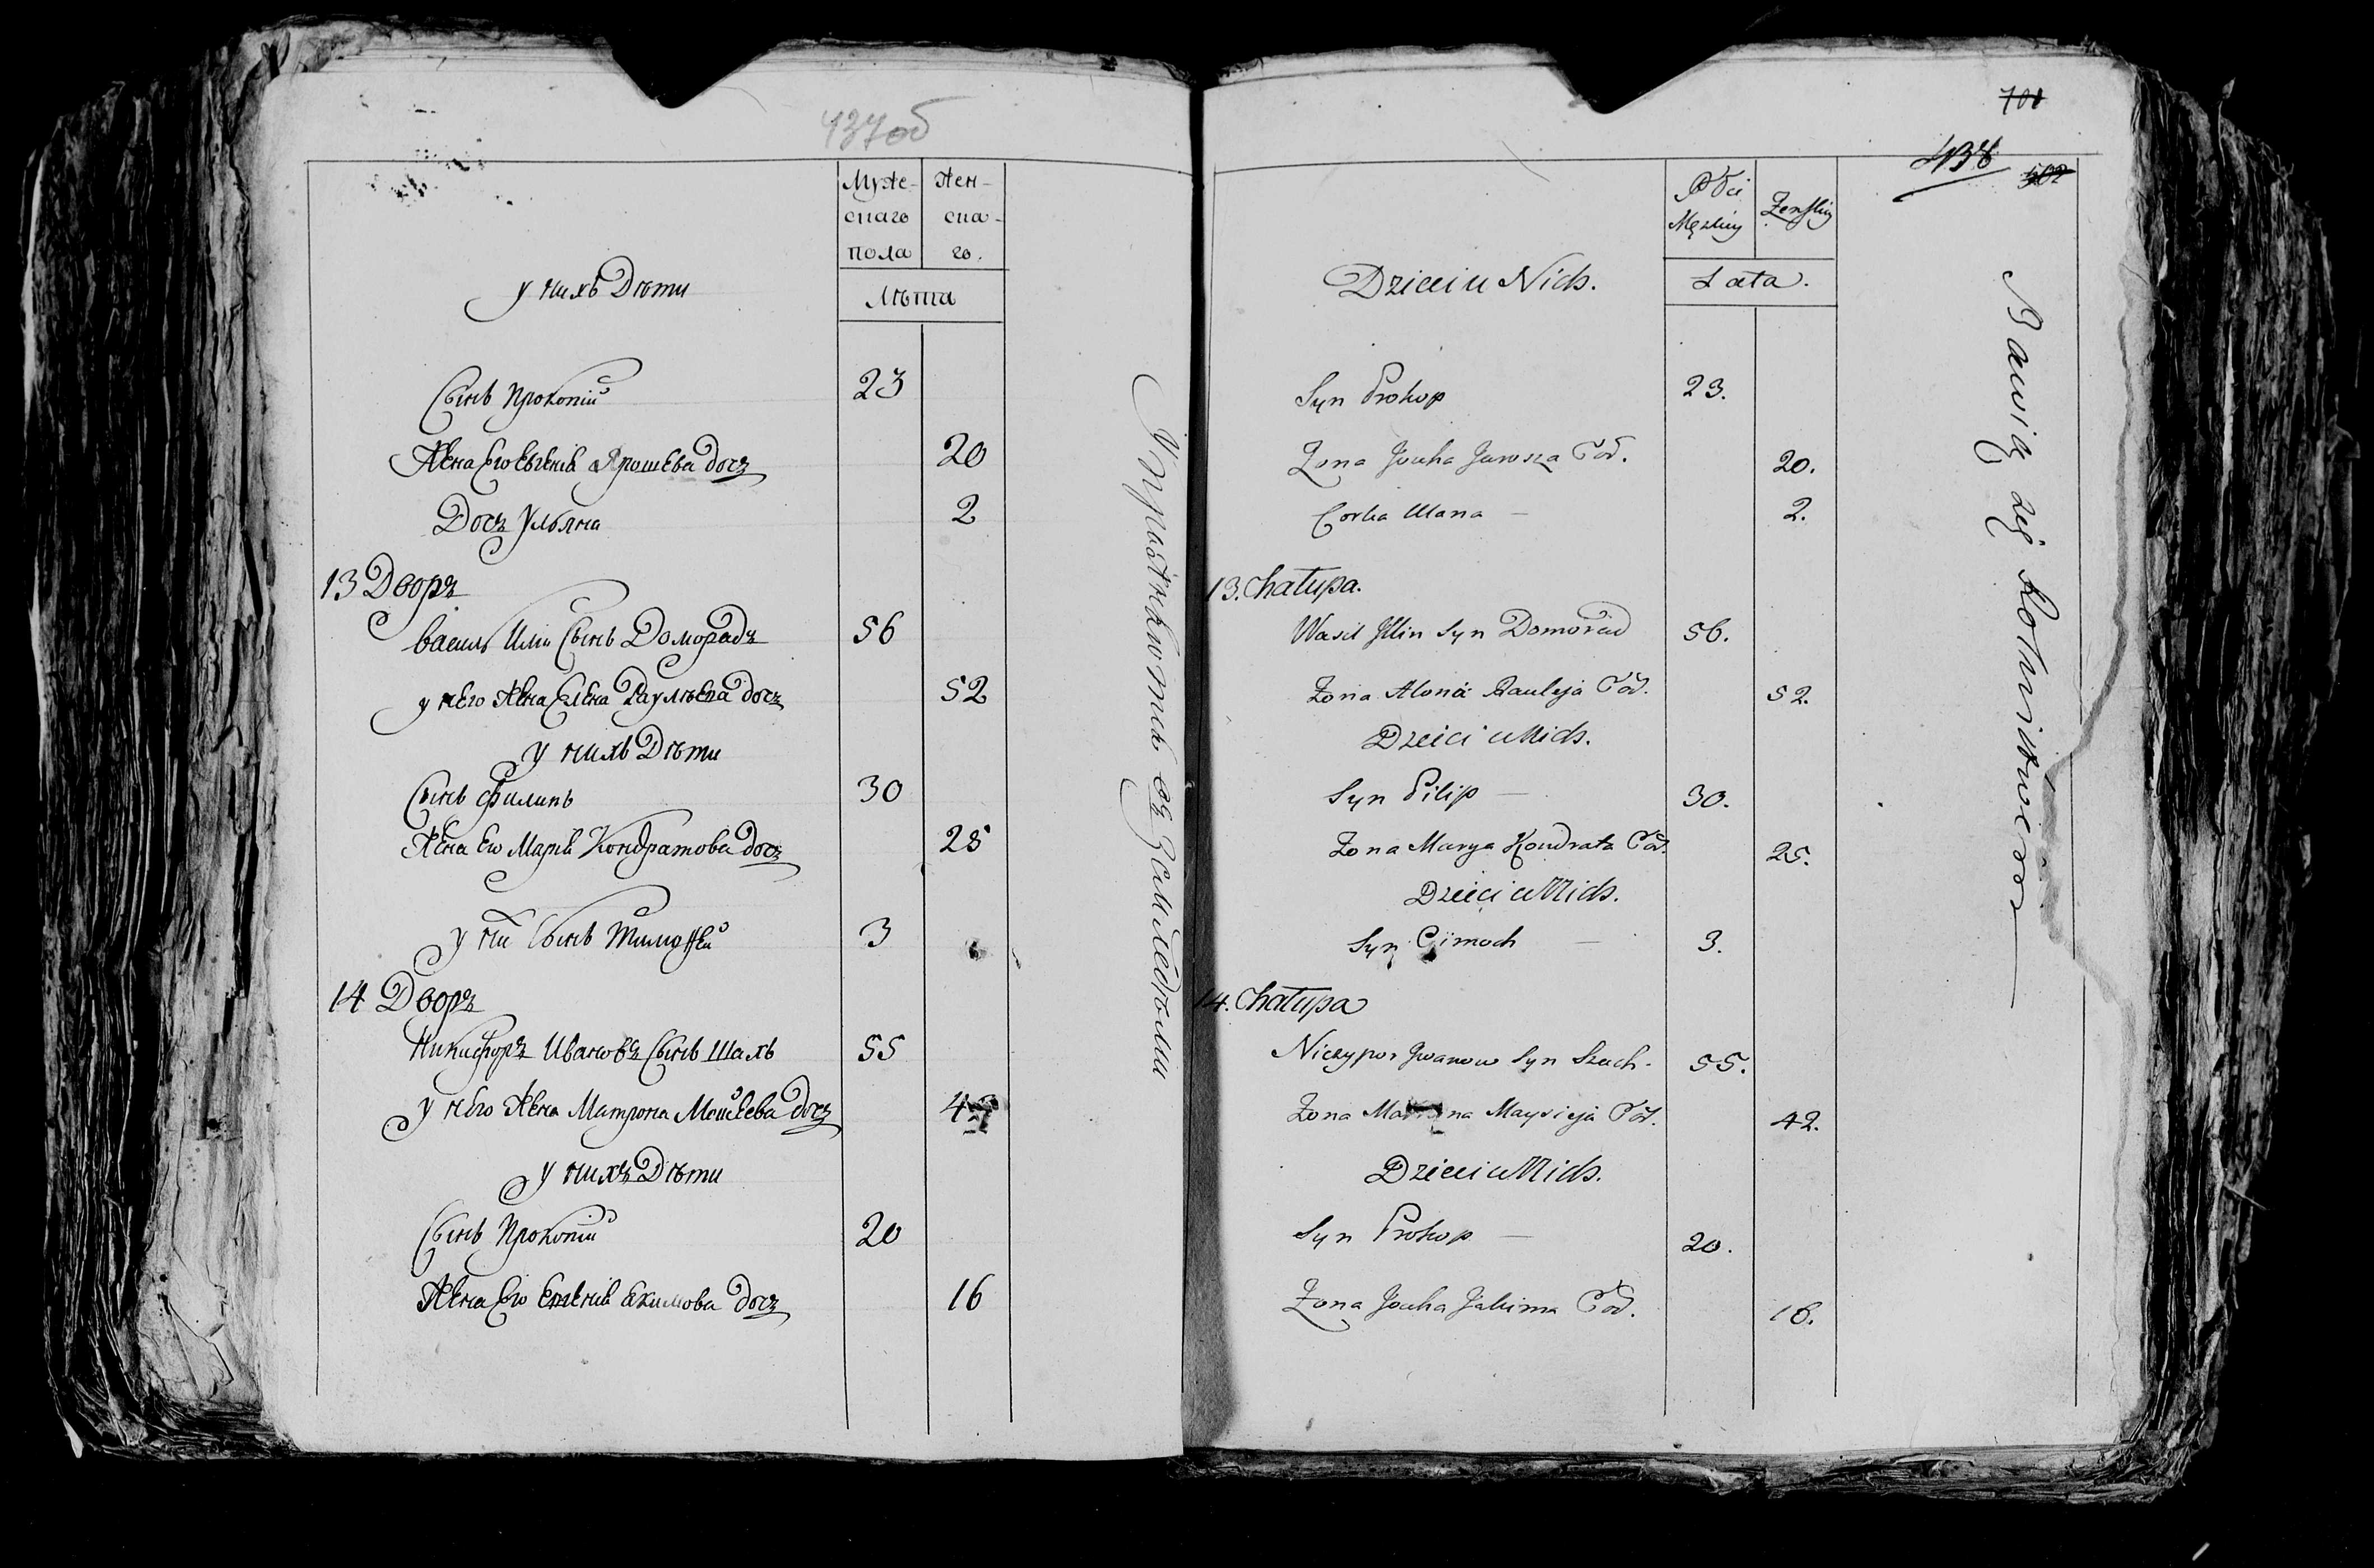 437об
Муже- Жен-
скаго ска-
пола го.
у нихъ Дѣти
Лѣта
Сынъ Прокопій 23
Жена Его Евгенія Ярошева дочъ 20
Дочъ Ульяна 2
13 Дворъ
Василь Илiи Сынъ Доморадъ 56
у него Жена Елена Раулѣева дочъ 52
у нихъ Дѣти
Сынъ Филипъ 30
Жена Его Марія Кондратова дочъ 25
у ни Сынъ Тимофей 3
14 Дворъ
Никифоръ Ивановъ Сынъ Шахъ 55
у него Жена Матрона Моисѣева дочъ
у нихъ Дѣти
Сынъ Прокопій 20
Жена Его Евгенія Екимова дочъ 16
701
438
502
Płci
Męzkiey Zenskiey
Dzieci u Nich. Lata.
Syn Prokop 23.
Zona Jouha Jarosza Cór. 20.
Corka Ulana — 2.
13. Chałupa.
Wasil Illin Syn Domorad 56.
Zona Alona Rauleja Cór. 52.
Dzeici u Nich.
Syn Pilip — 30.
Zona Marya Kondrata Cór. 25.
Dzeici u Nich.
Syn Cimoch — 3.
14. Chałupa
Niczypor Jwanow Syn Szach. 55.
Zona Maysieja Cór. 42.
Dzieci u Nich.
Syn Prokop — 20.
Zona Jouha Jakima Cór. 16.